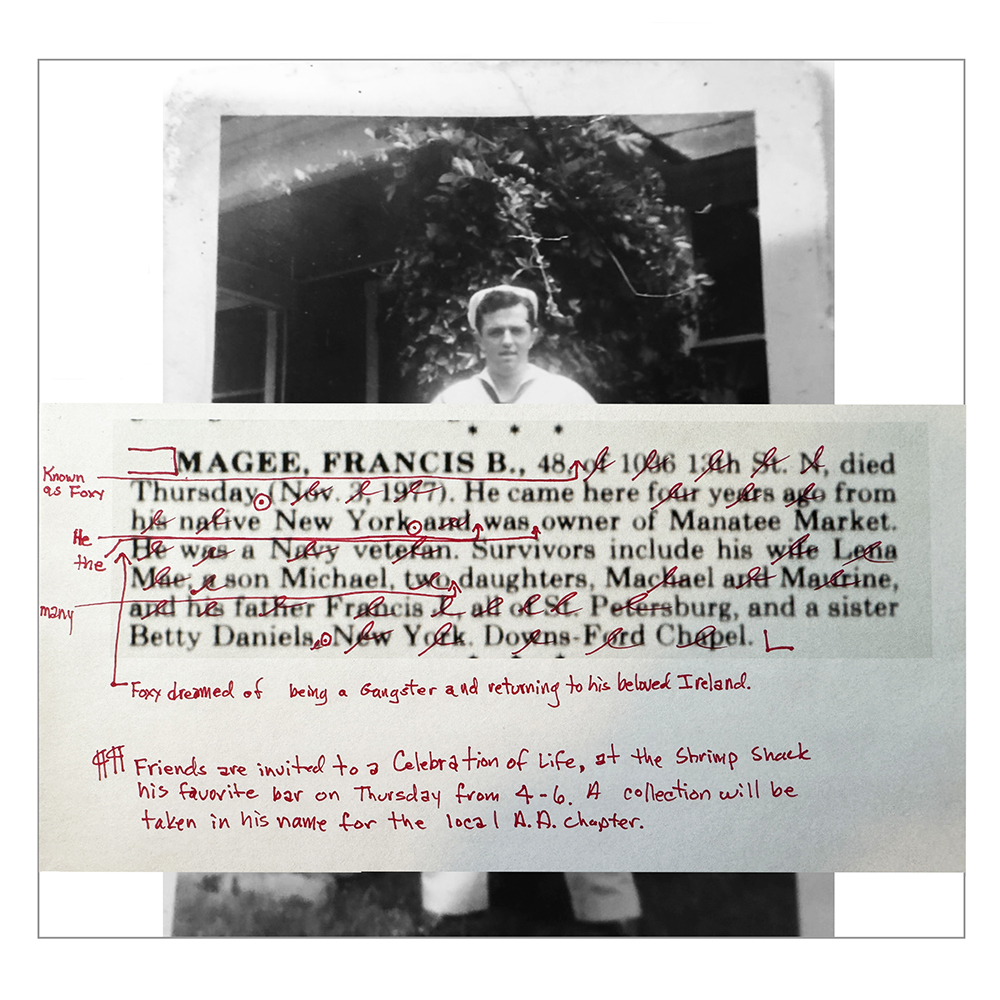 * * *
MAGEE, FRANCIS B., 48, of St. N, died
Known
as Foxy
Thursday (Nov. 3, 1977). He came here four years ago from
his native New York and was owner of Manatee Market.
He
the
He was a Navy veteran. Survivors include his wife Lena
Mae, a son Michael, two daughters, Machael and Maurine,
many
and his father Francis all of St. Petersburg, and a sister
Betty Daniels, New York. Downs-Ford Chapel.
Foxy dreamed of being a Gangster and returning to his beloved Ireland.
¶¶ Friends are invited to a Celebration of Life, at the Shrimp Shack
his favorite bar on Thursday from 4-6. A collection will be
taken in his name for the local A.A. chapter.